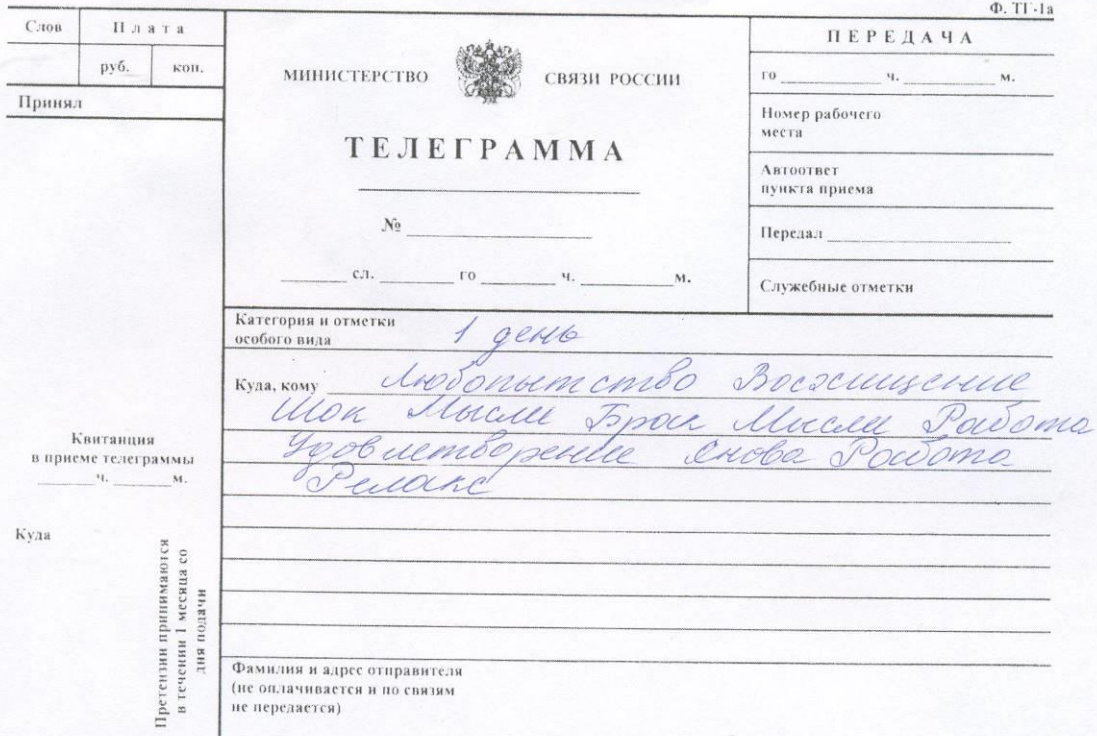 Ф. ТГ-1а
Слов
Плата
руб.
коп.
Принял
МИНИСТЕРСТВО СВЯЗИ РОССИИ
ТЕЛЕГРАММА
№
сл. го ч. м.
ПЕРЕДАЧА
го ч. м.
Номер рабочего
места
Автоответ
пункта приема
Передал
Служебные отметки
Категория и отметки
особого вида
1 день
Куда, кому Любопытство Восхищение
Шок Мысли Брак Мысли Работа
Удовлетворение Снова Работа
Релакс
Квитанция
в приеме телеграммы
ч. м.
Куда
Претензии принимаются
в течении 1 месяца со
дня подачи
Фамилия и адрес отправителя
(не оплачивается и по связям
не передается)